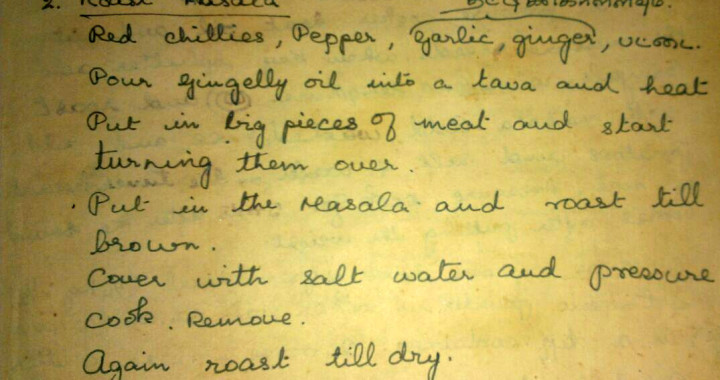 2. Roast Masala
Red chillies, Pepper, garlic, ginger,
Pour gingelly oil into a tava and heat
Put in big pieces of meat and start
turning them over.
Put in the Masala and roast till
brown.
Cover with salt water and pressure
cook. Remove.
Again roast till dry.